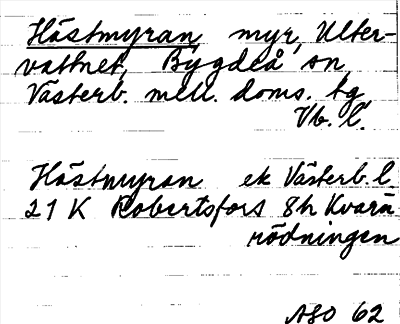 Hästmyran, myr, Ulter-
vattnet, Bygdeå sn,
Västerb. mell. doms. tg
Vb. l.
Hästmyran ek Västerb. l.
21 K Robertsfors 8h Kvarn
rödningen
ASO 62